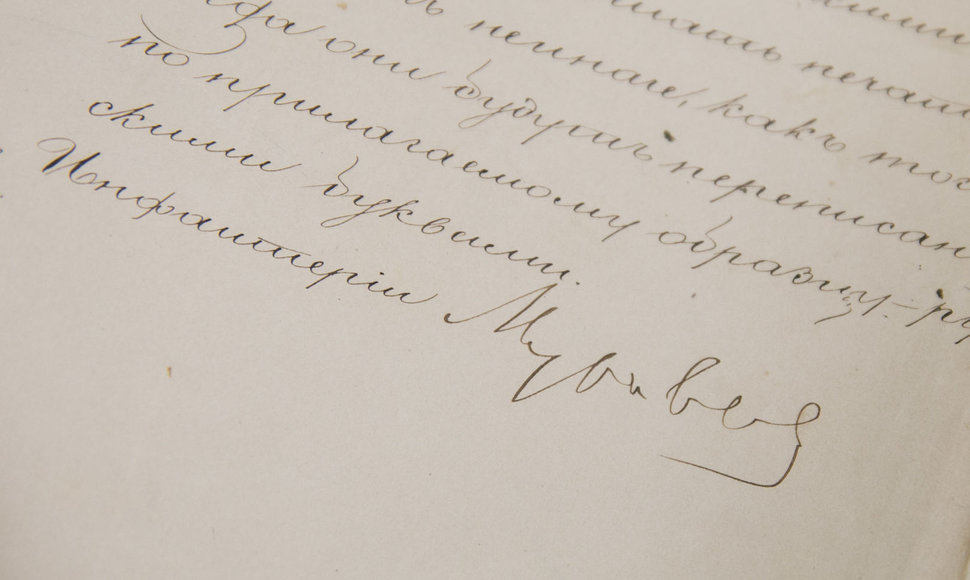 печат
пенная, какъ тог
они будутъ переписан
по прилагаемому образцу - ру
скими буквами.
Инфантеріи Муравьев